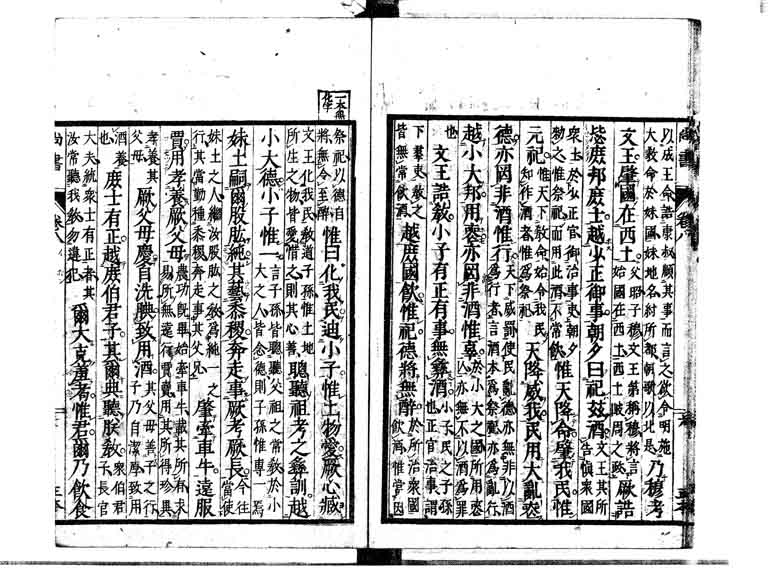 以成王命誥康叔順其事而言之欲令明施
大教命於妹國妹地名紂所都朝歌以北是
乃穆考
文王肇國在西土
父昭子穆文王第稱穆將言
始國在西土西土岐周之政
厥誥
毖庶邦庶士越少正御事朝夕曰祀茲酒
文王其所
告慎衆國
衆士於少正官御治事吏朝夕
勑之惟祭祀而用此酒不常飲
惟天降命肇我民惟
元祀
惟天下教命始令我民
知作酒者惟爲祭祀
天降威我民用大亂喪
德亦罔非酒惟行
天下威罰使民亂德亦無非以酒
爲行者言酒本爲祭祀亦爲亂行
越小大邦用喪亦罔非酒惟辜
於小大之國所用喪
亡亦無不以酒爲罪
也
文王誥教小子有正有事無彝酒
小子民之子孫
也正官治事謂
下羣吏教之
皆無常飲酒
越庶國飲惟祀德將無醉
於所治衆國
飲酒惟當因
尚書
卷八
一本無
化字
祭祀以德自
將無令至醉
惟曰化我民迪小子惟土物愛厥心臧
文王化我民教道子孫惟土地
所生之物皆愛惜之則其心善
聰聽祖考之彝訓越
小大德小子惟一
言子孫皆聰聽父祖之常教於小
大之人皆念德則子孫惟專一焉
妹土嗣爾股肱純其藝黍稷奔走事厥考厥長
今往
當使
妹土之人繼汝股肱之教爲純一之
行其當勤種黍稷奔走事其父兄
肇牽車牛遠服
賈用孝養厥父母
農功既畢始牽車牛載其所有求
易所無遠行賈賣用其所得珍異
孝養其
父母
厥父母慶自洗腆致用酒
其父母善子之行
子乃自潔厚致用
酒養
也
庶士有正越庶伯君子其爾典聽朕教
衆伯君
子長官
大夫統衆士有正者其
汝常聽我教勿違犯
爾大克羞耇惟君爾乃飲食
尚書
卷八